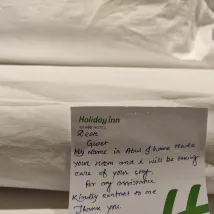 Holiday Inn
Dear
Guest
My name is Abul & have made
your room and I will be taking
care of your stay.
For any assistance
Kindly contact to me
Thank you.